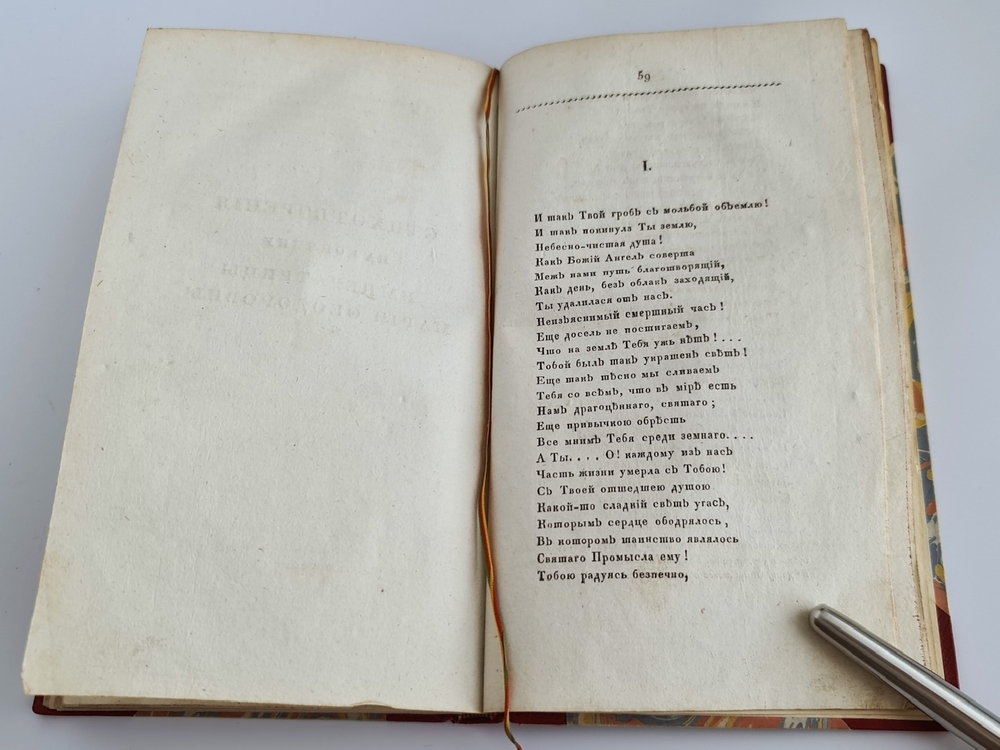 59
I.
И такъ Твой гробъ съ мольбой объемлю!
И такъ покинула Ты землю,
Небесно-чистая душа!
Какъ Божій Ангелъ соверша
Межъ нами путь благотворящій,
Какъ день, безъ облакъ заходящій,
Ты удалилася отъ насъ.
Неизъяснимый смертный часъ!
Еще досель не постигаемъ,
Что на землѣ Тебя ужъ нѣтъ! . . .
Тобой былъ такъ украшенъ свѣтъ!
Еще такъ тѣсно мы сливаемъ
Тебя со всѣмъ, что въ мірѣ есть
Намъ драгоцѣннаго, святаго;
Еще привычкою обрѣсть
Все мнимъ Тебя среди земнаго. . . .
А Ты. . . . О! каждому изъ насъ
Часть жизни умерла съ Тобою!
Съ Твоей отшедшею душою
Какой-то сладкій свѣтъ угасъ,
Которымъ сердце ободрялось,
Въ которомъ таинство являлось
Святаго Промысла ему!
Тобою радуясь безпечно,